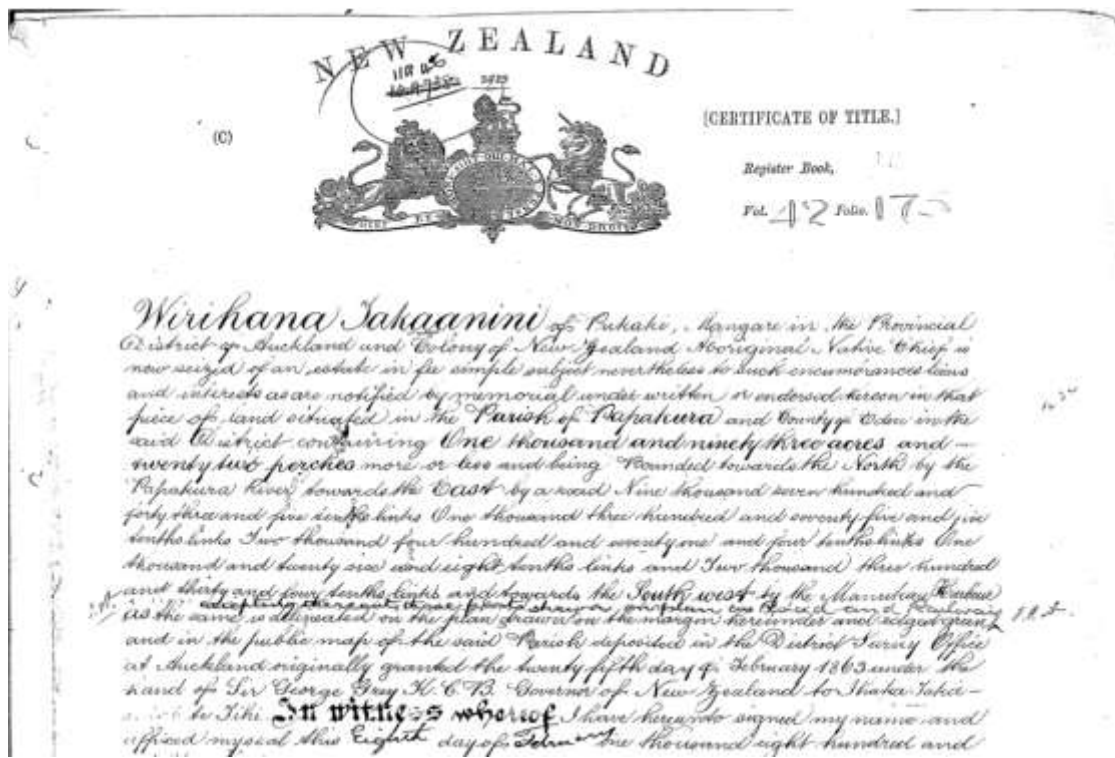 NEW ZEALAND
(C)
[CERTIFICATE OF TITLE.]
Register Book,
Vol. 42 Folio. 175
Wirihana Takaanini of Pukaki, Mangare in the Provincial
District of Auckland and Colony of New Zealand Aboriginal Native Chief is
now seized of an estate in fee simple subject nevertheless to such encumbrances liens
and interests as are notified by memorial under written or endorsed hereon in that
piece of land situated in the Parish of Papakura and County of Eden in the
said District containing One thousand and ninety three acres and —
twenty two perches more or less and being Bounded towards the North by the
Papakura River towards the East by a road Nine thousand seven hundred and
forty three and five tenths links One thousand three hundred and seventy five and five
tenths links Two thousand four hundred and seventy one and four tenths links One
thousand and twenty six and eight tenths links and Two thousand three hundred
and thirty and four tenths links and towards the South west by the Manukau Harbour
excepting thereout those parts shewn on plan as Road and Railway
as the same is delineated on the plan drawn on the margin hereunder and edged green
and in the public map of the said Parish deposited in the District Survey Office
at Auckland originally granted the twenty fifth day of February 1863 under the
hand of Sir George Grey K.C.B. Governor of New Zealand to Ihaka
te Tihi In witness whereof I have hereunto signed my name and
affixed my seal this Eighth day of February one thousand eight hundred and